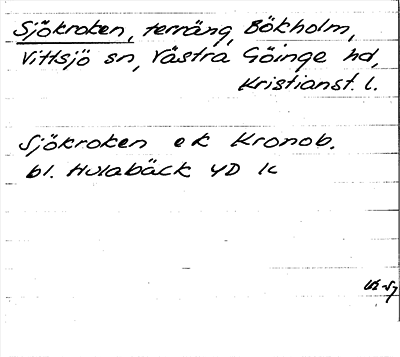 Sjökroken, terräng, Bökholm,
Vittsjö sn, Västra Göinge hd,
Kristianst. l.
Sjökroken ek Kronob.
bl. Hulabäck 4D 1c